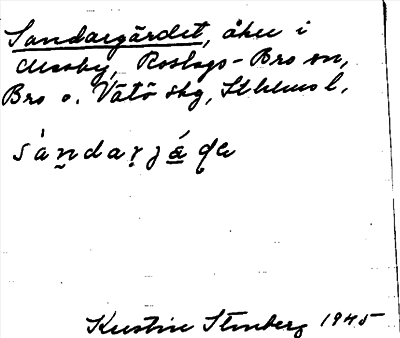 Sandargärdet, åker i
Broby, Roslags-Bro sn,
Bro o. Vätö skg, Sthlms l.
sàndarjá
Kerstin Stenberg 1945